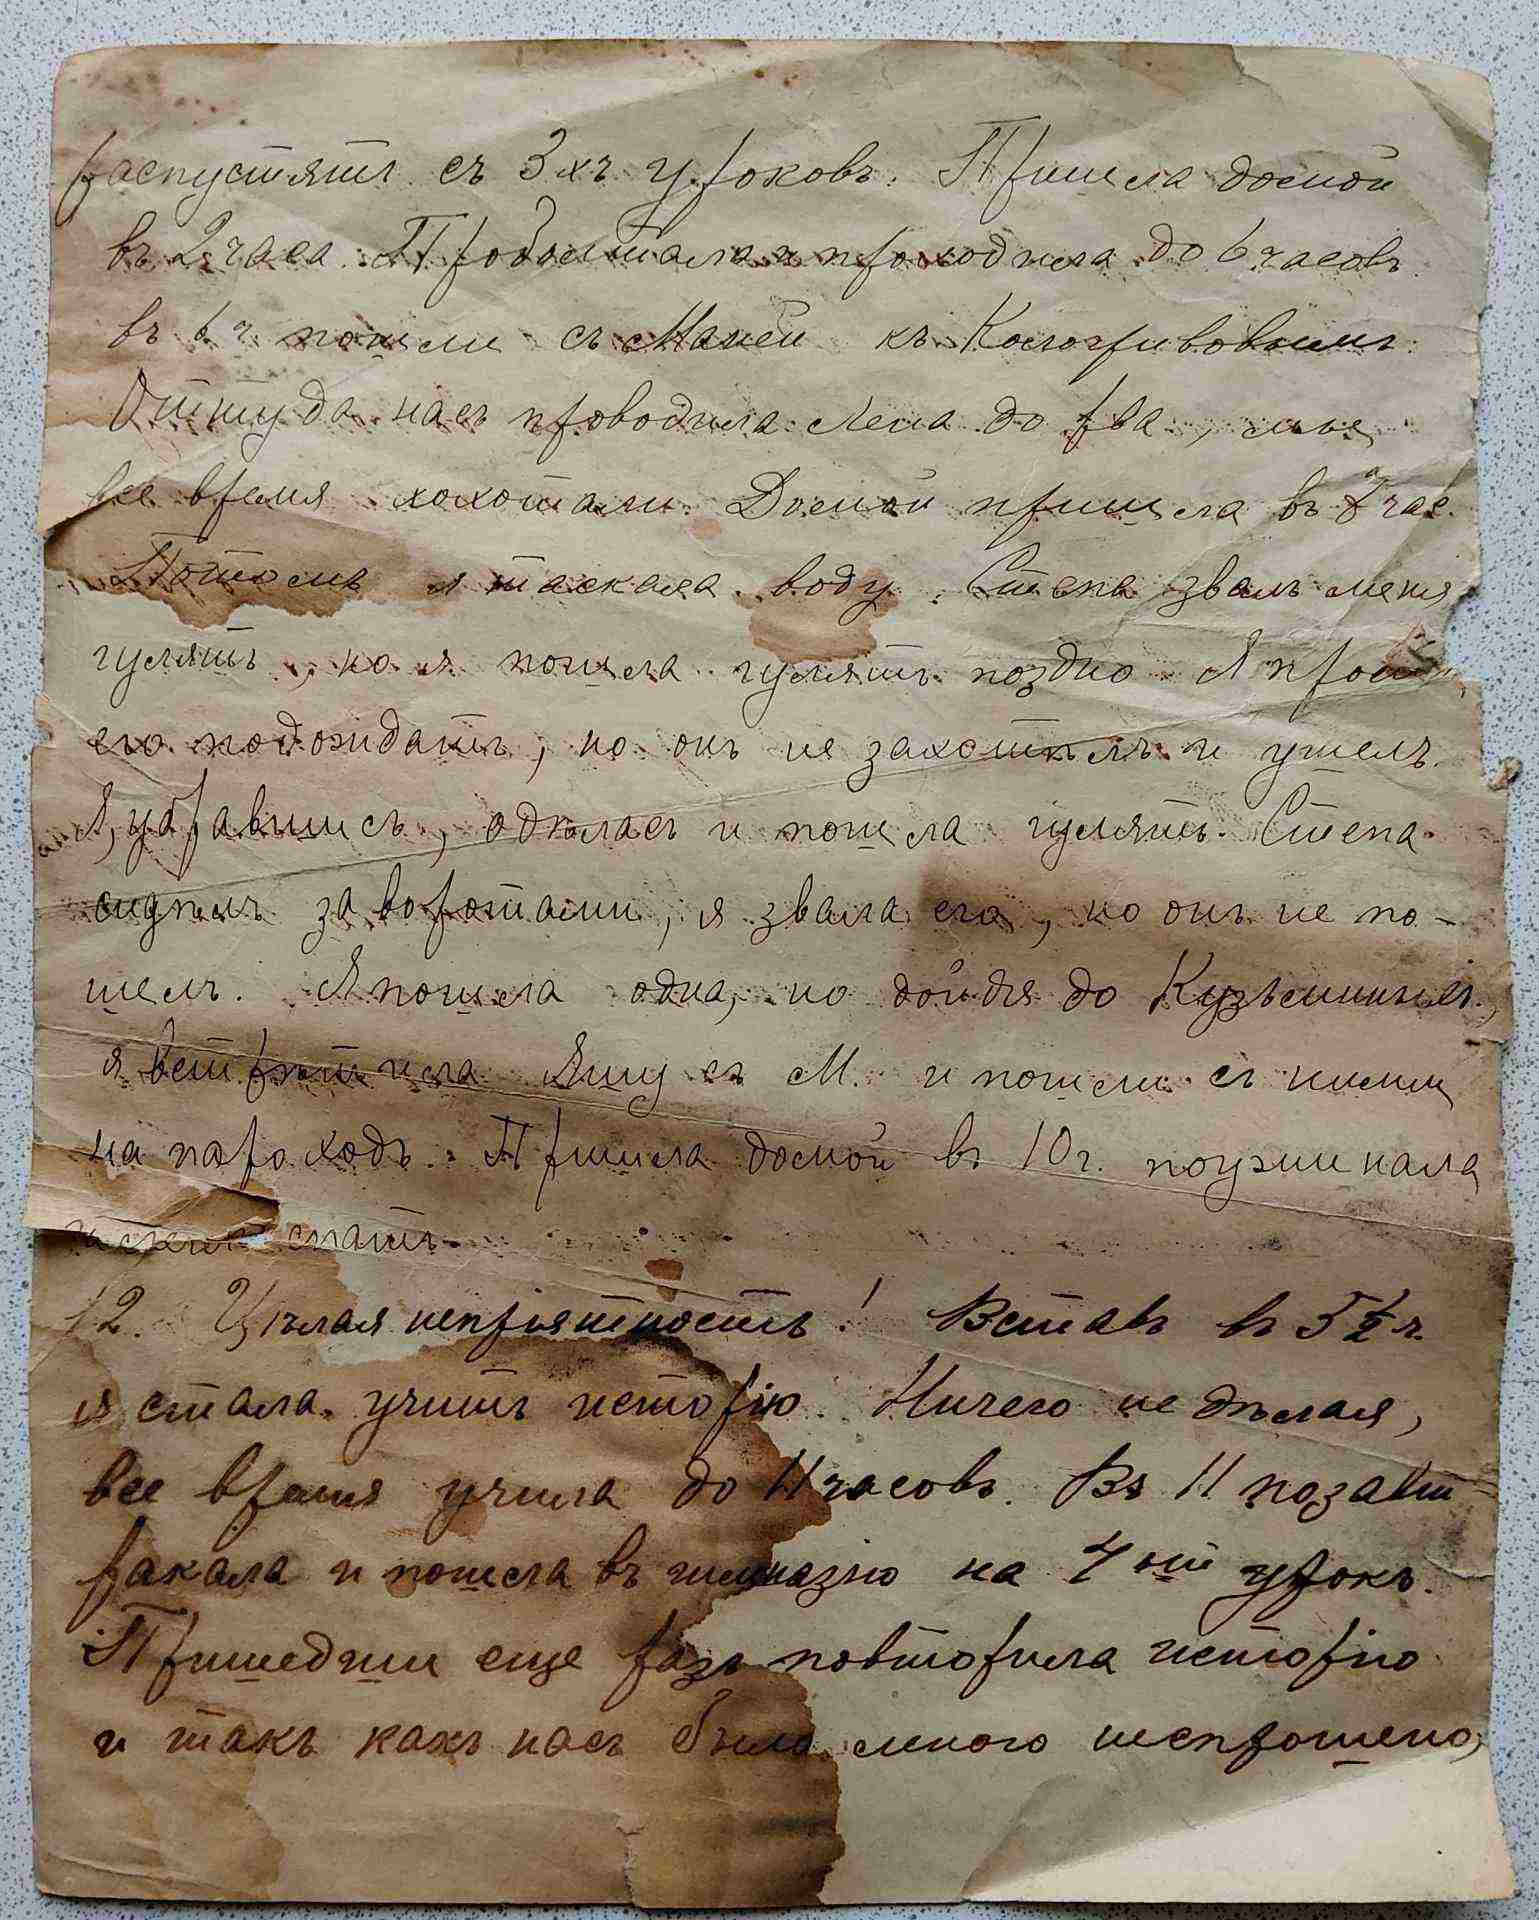 распустятъ съ 3хъ уроковъ. Пришла домой
въ 2 часа. Проболтала и проходила до 6 часовъ
въ 6 ч пошли съ Маней къ Кологривовымъ.
Оттуда насъ проводила Лена до рва, мы
все время хохотали. Домой пришла въ 8 час.
Потомъ я таскала воду. Степа звалъ меня
гулять, но я пошла гулять поздно Я
его подождать, но онъ не захотѣлъ и ушелъ.
Я, убравшись, одѣлась и пошла гулять. Степа
сидѣлъ за воротами, я звала его, но онъ не по-
шелъ. Я пошла одна, но дойдя до Кузьминыхъ,
я встрѣтила Яшу съ М. и пошли съ ними
на пароходъ. Пришла домой въ 10 ч. поужинала
и спать.
12. Цѣлая непріятность! Вставъ въ 5½ ч.
я стала учить исторію. Ничего не дѣлая,
все время учила до 11 часовъ. Въ 11 позавт-
ракала и пошла въ гимназію на 4ый урокъ.
Пришедши еще разъ повторила исторію
и такъ какъ насъ было много неспрошено,